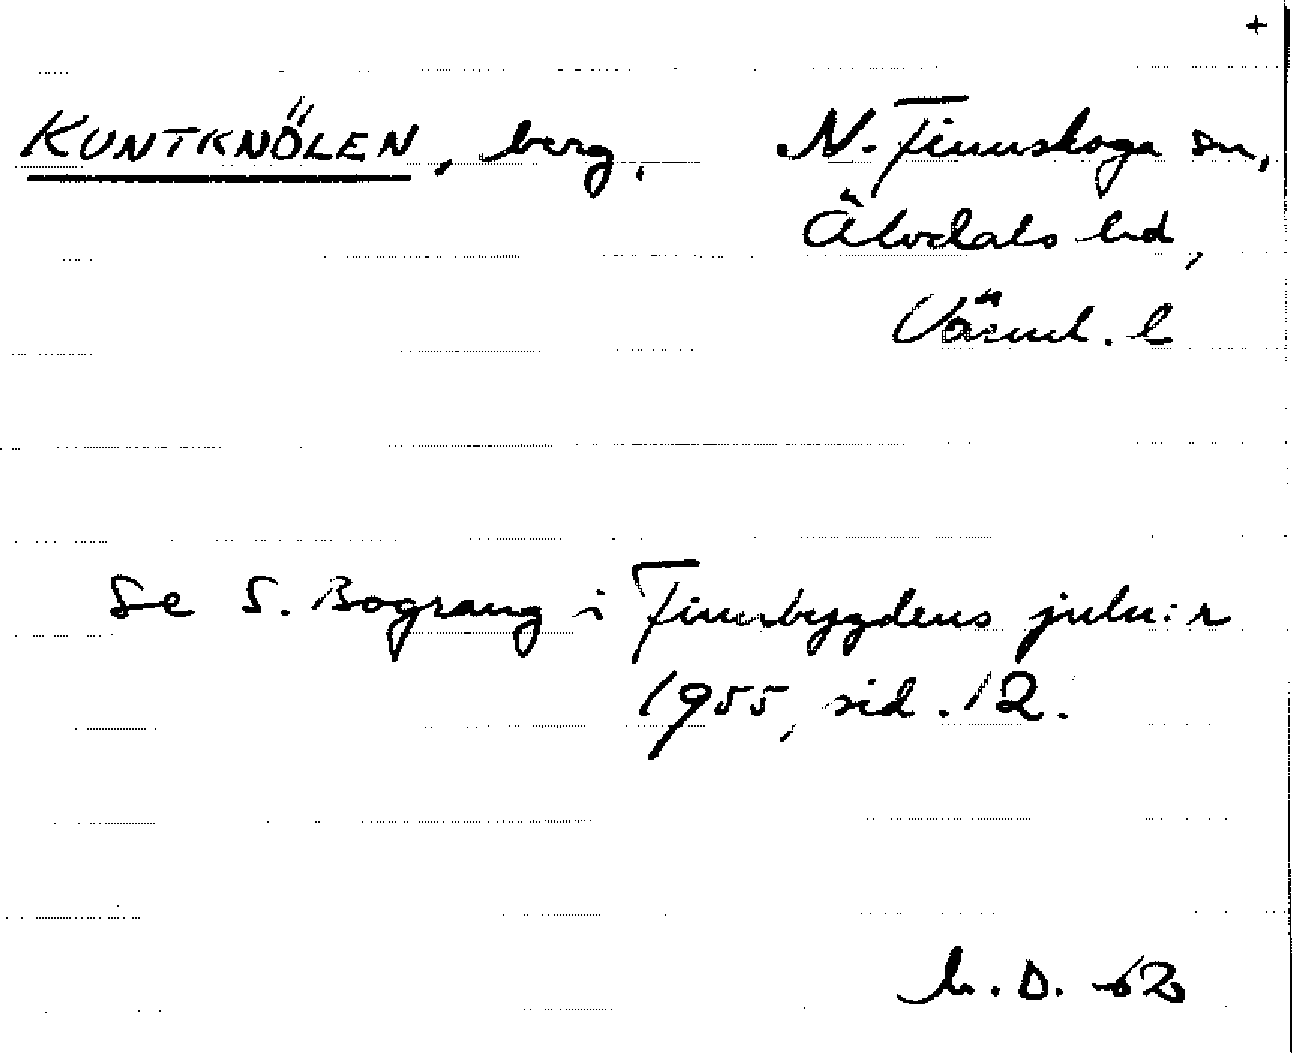 +
KUNTKNÖLEN, berg, N. Finnskoga sn,
Älvdals hd,
Värml. l
Se S. Bograng i Finnbygdens juln:r
1955, sid. 12.
h. D. -62